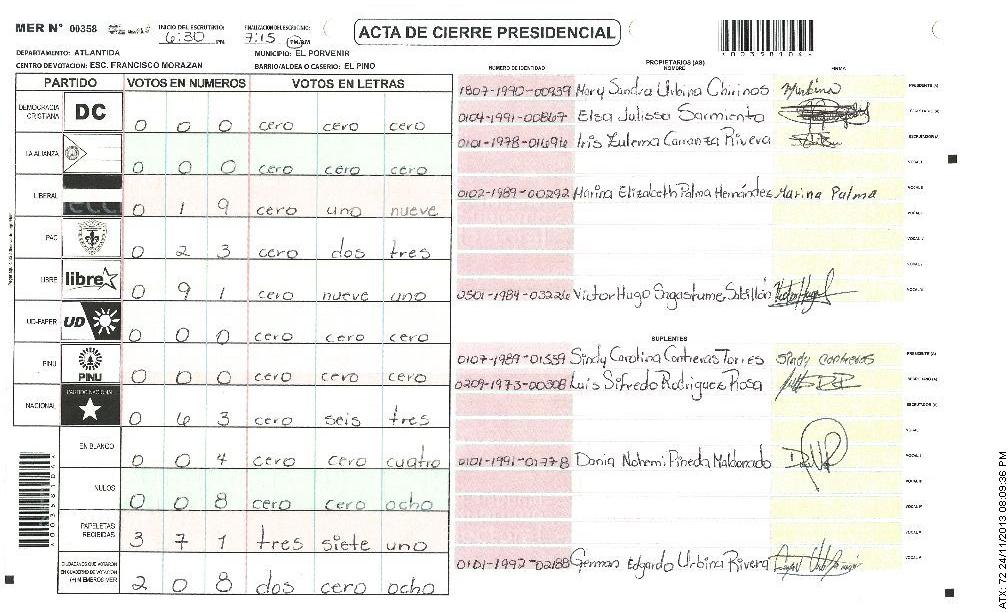 MER N° 00358
INICIO DEL ESCRUTINIO:
6:30 PM
FINALIZACION DEL ESCRUTINIO:
7:15 PM/AM
ACTA DE CIERRE PRESIDENCIAL
DEPARTAMENTO: ATLANTIDA
MUNICIPIO: EL PORVENIR
CENTRO DE VOTACION: ESC. FRANCISCO MORAZAN
BARRIO/ALDEA O CASERIO: EL PINO
PARTIDO VOTOS EN NUMEROS VOTOS EN LETRAS
DEMOCRACIA CRISTIANA DC 0 0 0 cero cero cero
LA ALIANZA 0 0 0 cero cero cero
LIBERAL 0 1 9 cero uno nueve
PAC 0 2 3 cero dos tres
LIBRE libre 0 9 1 cero nueve uno
UD-FAPER UD 0 0 0 cero cero cero
PINU PINU 0 0 0 cero cero cero
NACIONAL PARTIDO NACIONAL 0 6 3 cero seis tres
EN BLANCO 0 0 4 cero cero cuatro
NULOS 0 0 8 cero cero ocho
PAPELETAS RECIBIDAS 3 7 1 tres siete uno
CIUDADANOS QUE VOTARON EN CUADERNO DE VOTACION (+) MIEMBROS MER 2 0 8 dos cero ocho
PROPIETARIOS (AS)
NUMERO DE IDENTIDAD NOMBRE FIRMA
1807-1990-00939 Mary Sandra Urbina Chirinos PRESIDENTE (A)
0104-1991-00867 Elsa Julissa Sarmiento SECRETARIO (A)
0101-1978-01696 Iris Zulema Carranza Rivera ESCRUTADOR (A)
0102-1989-00292 Marina Elizabeth Palma Hernández Marina Palma
0501-1984-03226 Victor Hugo Sagastume Satillón
SUPLENTES
0107-1989-01559 Sindy Carolina Contreras Torres Sindy Contreras PRESIDENTE (A)
0209-1973-00308 Luis Sifredo Rodriguez Rosa SECRETARIO (A)
ESCRUTADOR (A)
0101-1991-01778 Dania Nohemi Pineda Maldonado
0101-1992-02188 German Edgardo Urbina Rivera
ATX: 72 24/11/2013 08:09:36 PM